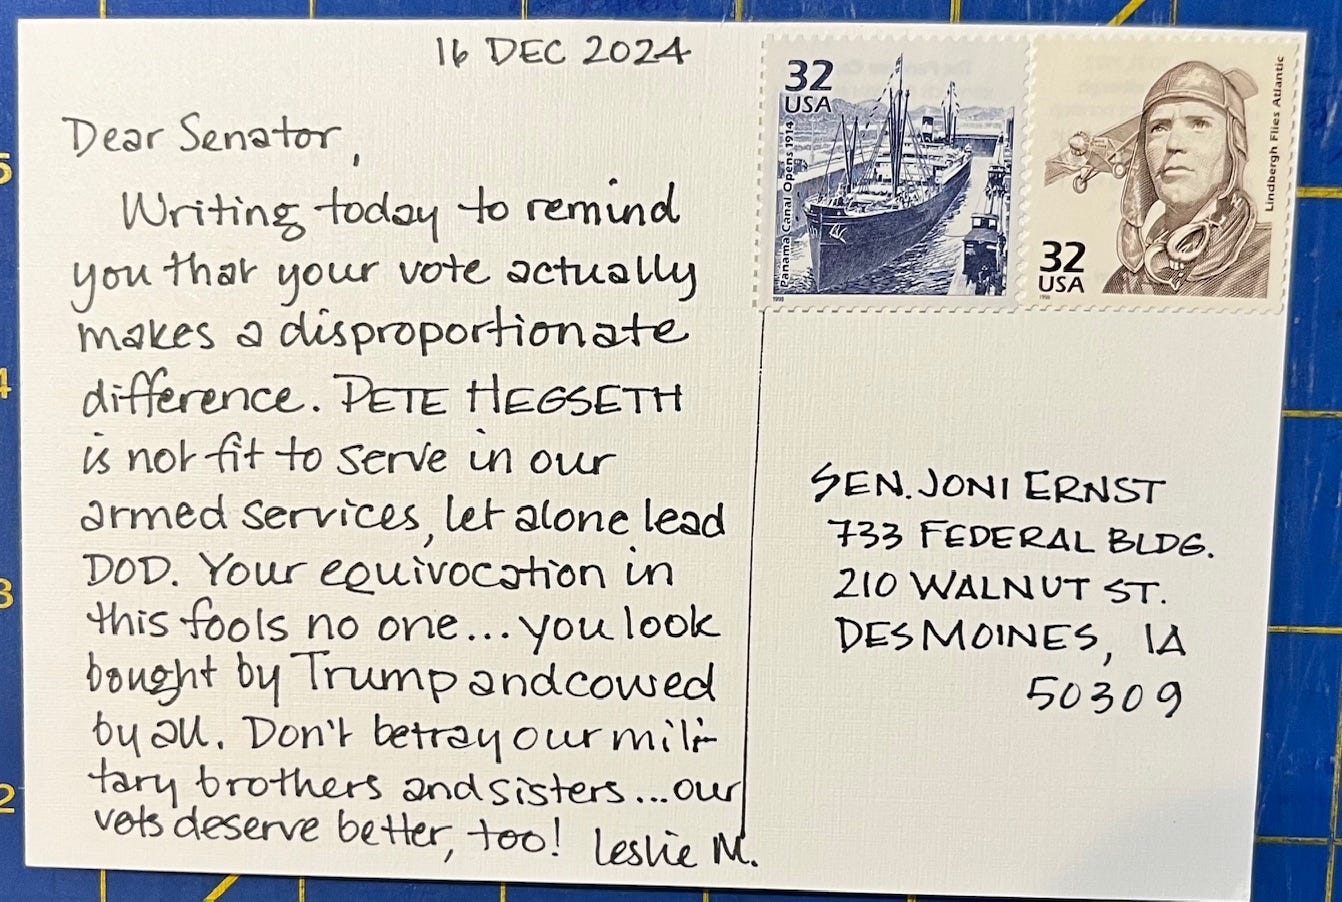 16 DEC 2024
Dear Senator,
Writing today to remind
you that your vote actually
makes a disproportionate
difference. PETE HEGSETH
is not fit to serve in our
armed services, let alone lead
DOD. Your equivocation in
this fools no one... you look
bought by Trump and cowed
by all. Don't betray our mili-
tary brothers and sisters... our
vets deserve better, too! Leslie M.
32
USA
Panama Canal Opens 1914
1998
32
USA
Lindbergh Flies Atlantic
1998
SEN. JONI ERNST
733 FEDERAL BLDG.
210 WALNUT ST.
DES MOINES, IA
50309
5
4
3
2